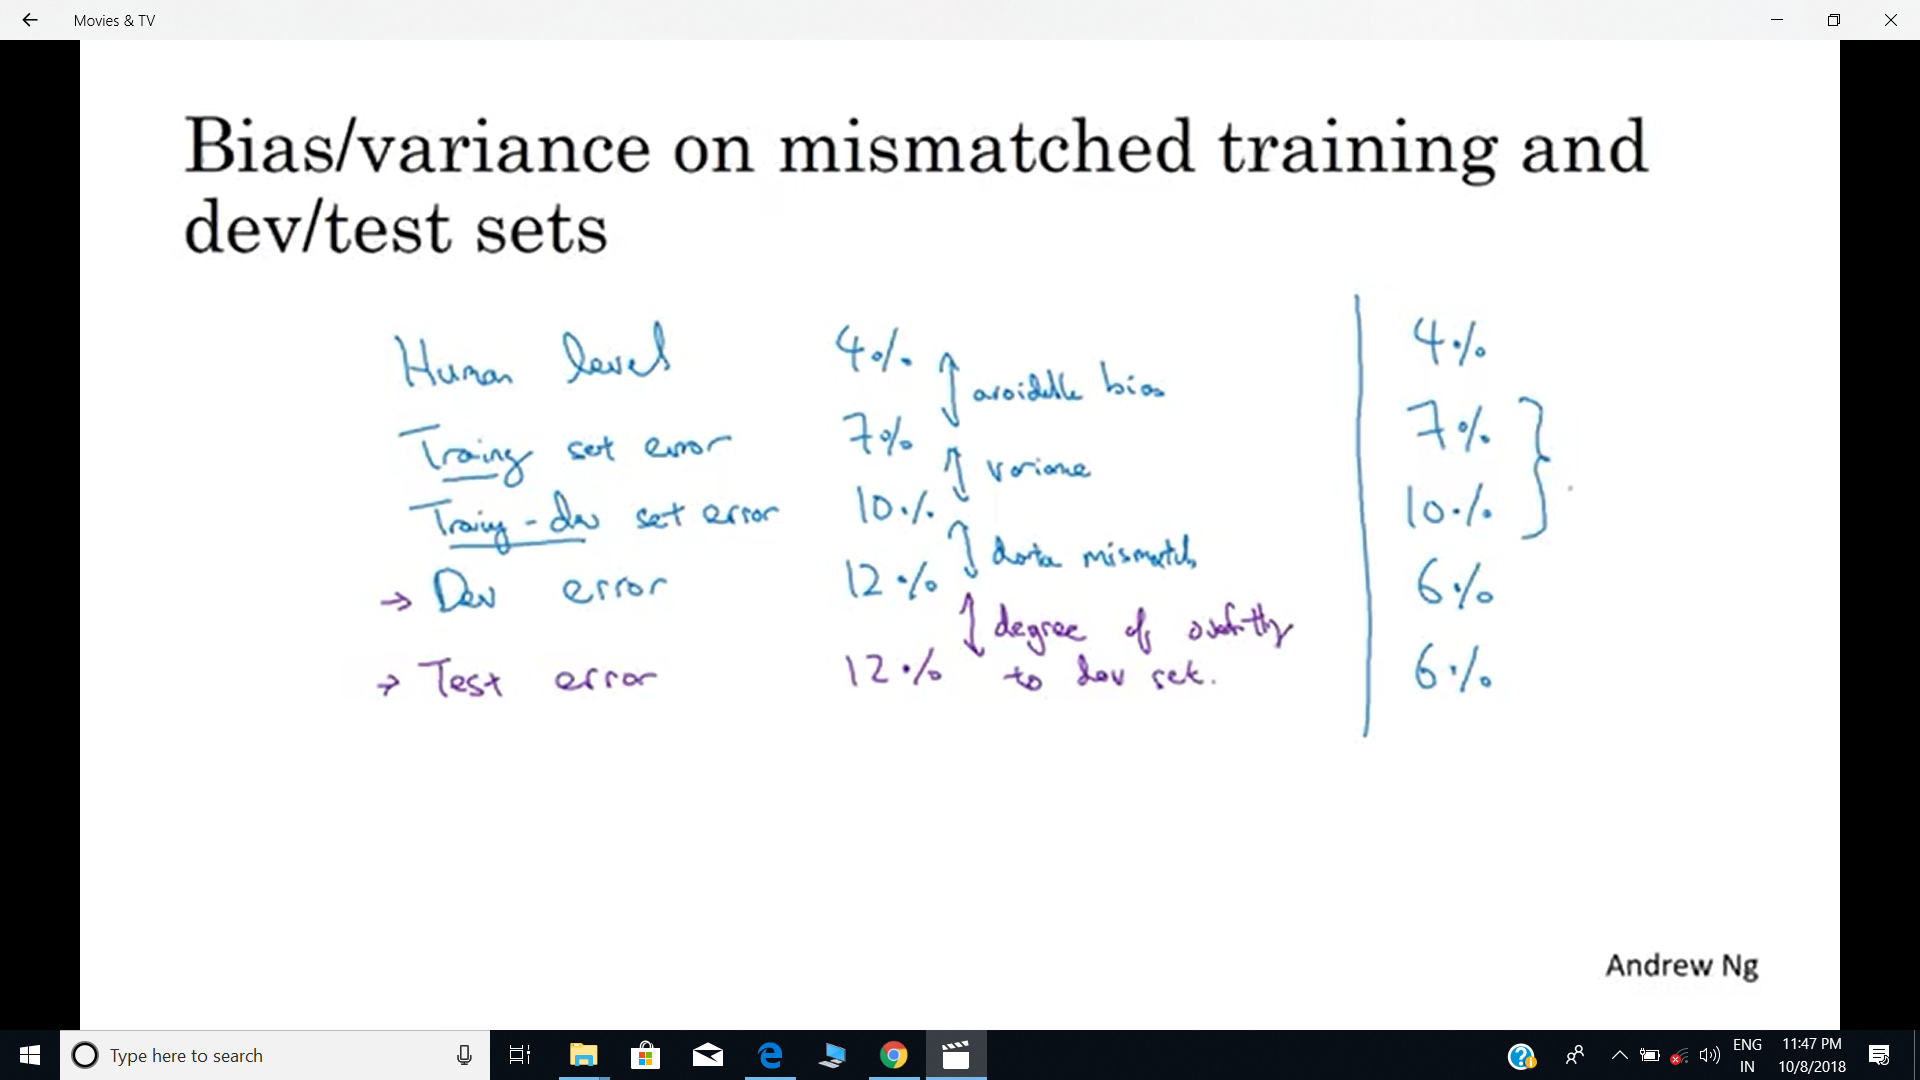 Movies & TV
Bias/variance on mismatched training and
dev/test sets
Human level 4% 4%
avoidable bias
Training set error 7% 7%
variance
Training-dev set error 10% 10%
data mismatch
→ Dev error 12% 6%
degree of overfitting
→ Test error 12% to dev set. 6%
Andrew Ng
Type here to search
ENG 11:47 PM
IN 10/8/2018